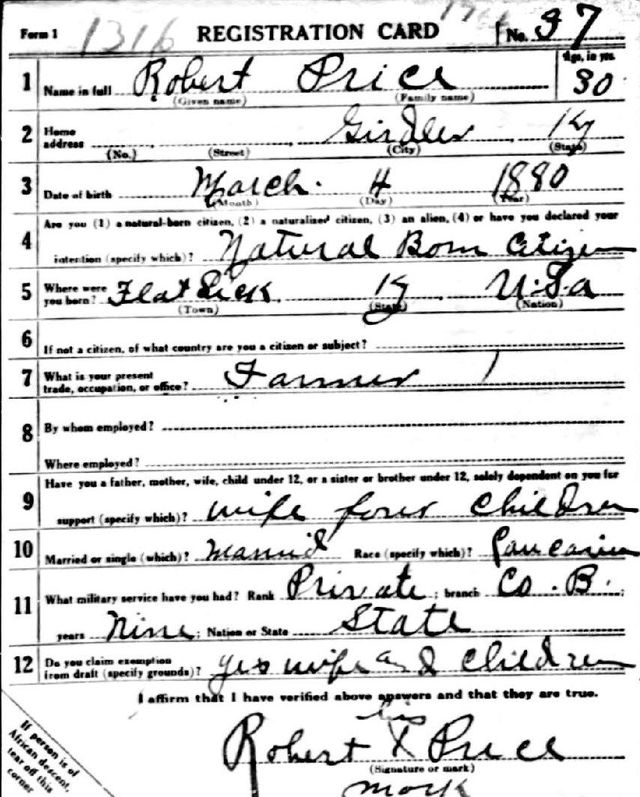 Form 1 1316 REGISTRATION CARD No. 37
1 Name in full Robert Price Age, in yrs. 30
(Given name) (Family name)
2 Home address Girdler Ky
(No.) (Street) (City) (State)
3 Date of birth March 4 1880
(Month) (Day) (Year)
4 Are you (1) a natural-born citizen, (2) a naturalized citizen, (3) an alien, (4) or have you declared your
intention (specify which)? Natural Born Citizen
5 Where were you born? Flat Lick Ky U.S.a
(Town) (State) (Nation)
6 If not a citizen, of what country are you a citizen or subject?
7 What is your present trade, occupation, or office? Farmer
8 By whom employed?
Where employed?
9 Have you a father, mother, wife, child under 12, or a sister or brother under 12, solely dependent on you for
support (specify which)? wife four children
10 Married or single (which)? Married Race (specify which)? Caucasian
11 What military service have you had? Rank Private; branch Co. B.;
years Nine; Nation or State State
12 Do you claim exemption from draft (specify grounds)? yes wife and children
I affirm that I have verified above answers and that they are true.
his
Robert X Price
(Signature or mark)
mark
If person is of
African descent,
tear off this
corner